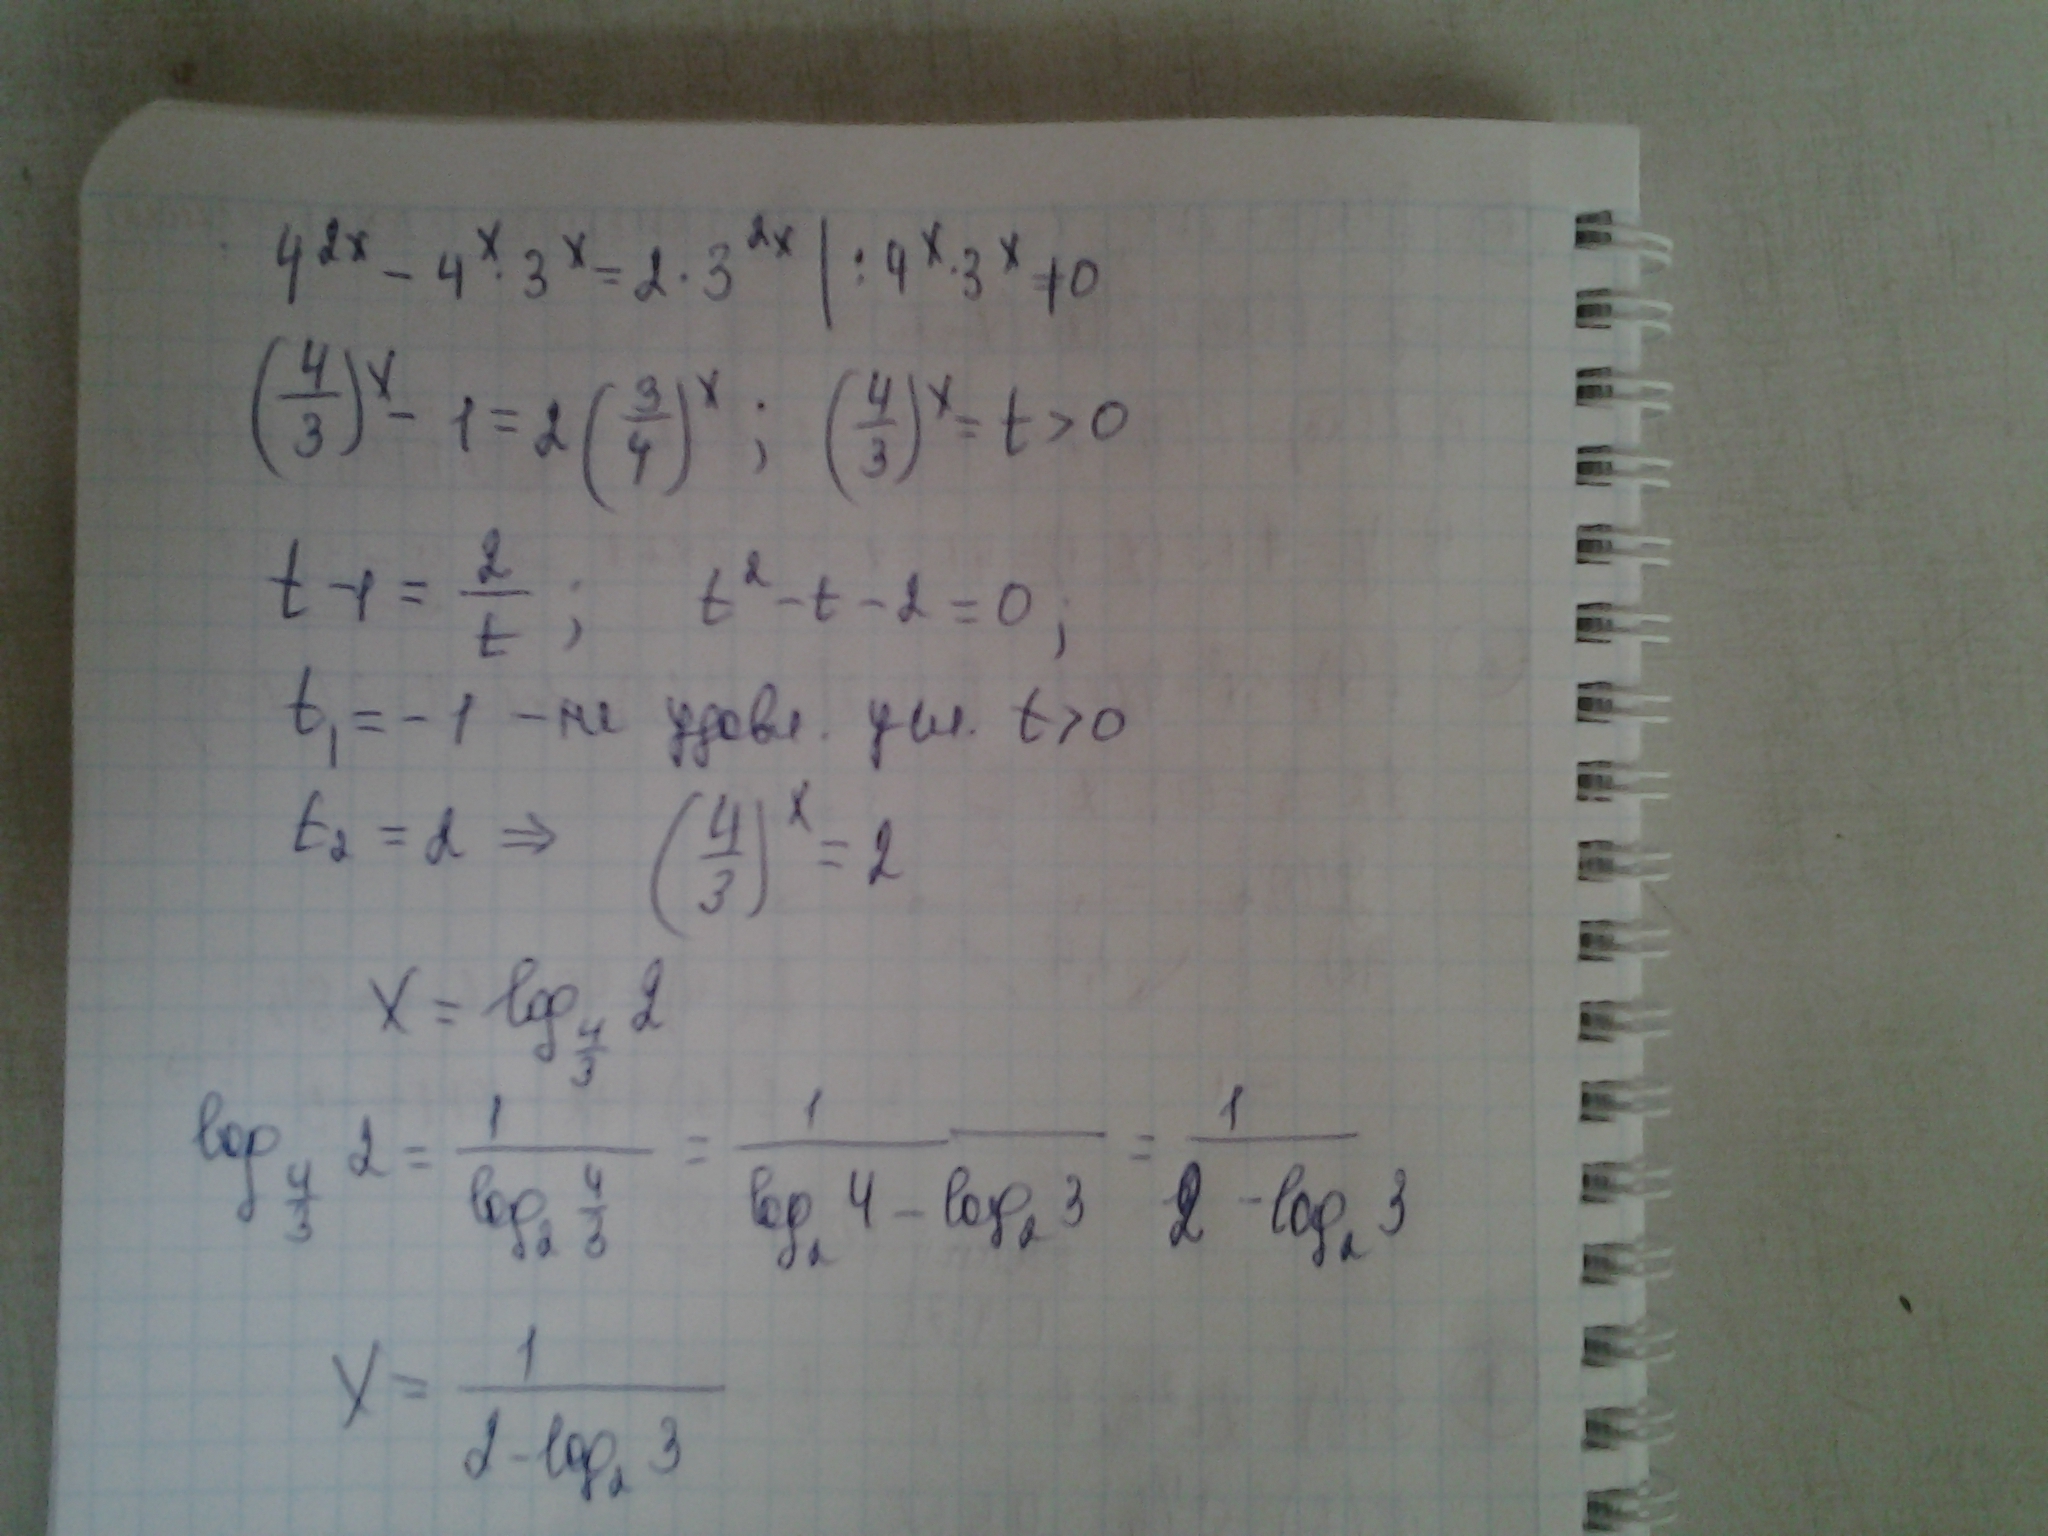 4^{2x} - 4^x · 3^x = 2 · 3^{2x} | : 4^x · 3^x ≠ 0
(4/3)^x - 1 = 2(3/4)^x ; (4/3)^x = t > 0
t - 1 = 2/t ; t^2 - t - 2 = 0 ;
t_1 = -1 - не удовл. усл. t > 0
t_2 = 2 ⇒ (4/3)^x = 2
x = log_{4/3} 2
log_{4/3} 2 = 1/(log_2 4/3) = 1/(log_2 4 - log_2 3) = 1/(2 - log_2 3)
x = 1/(2 - log_2 3)